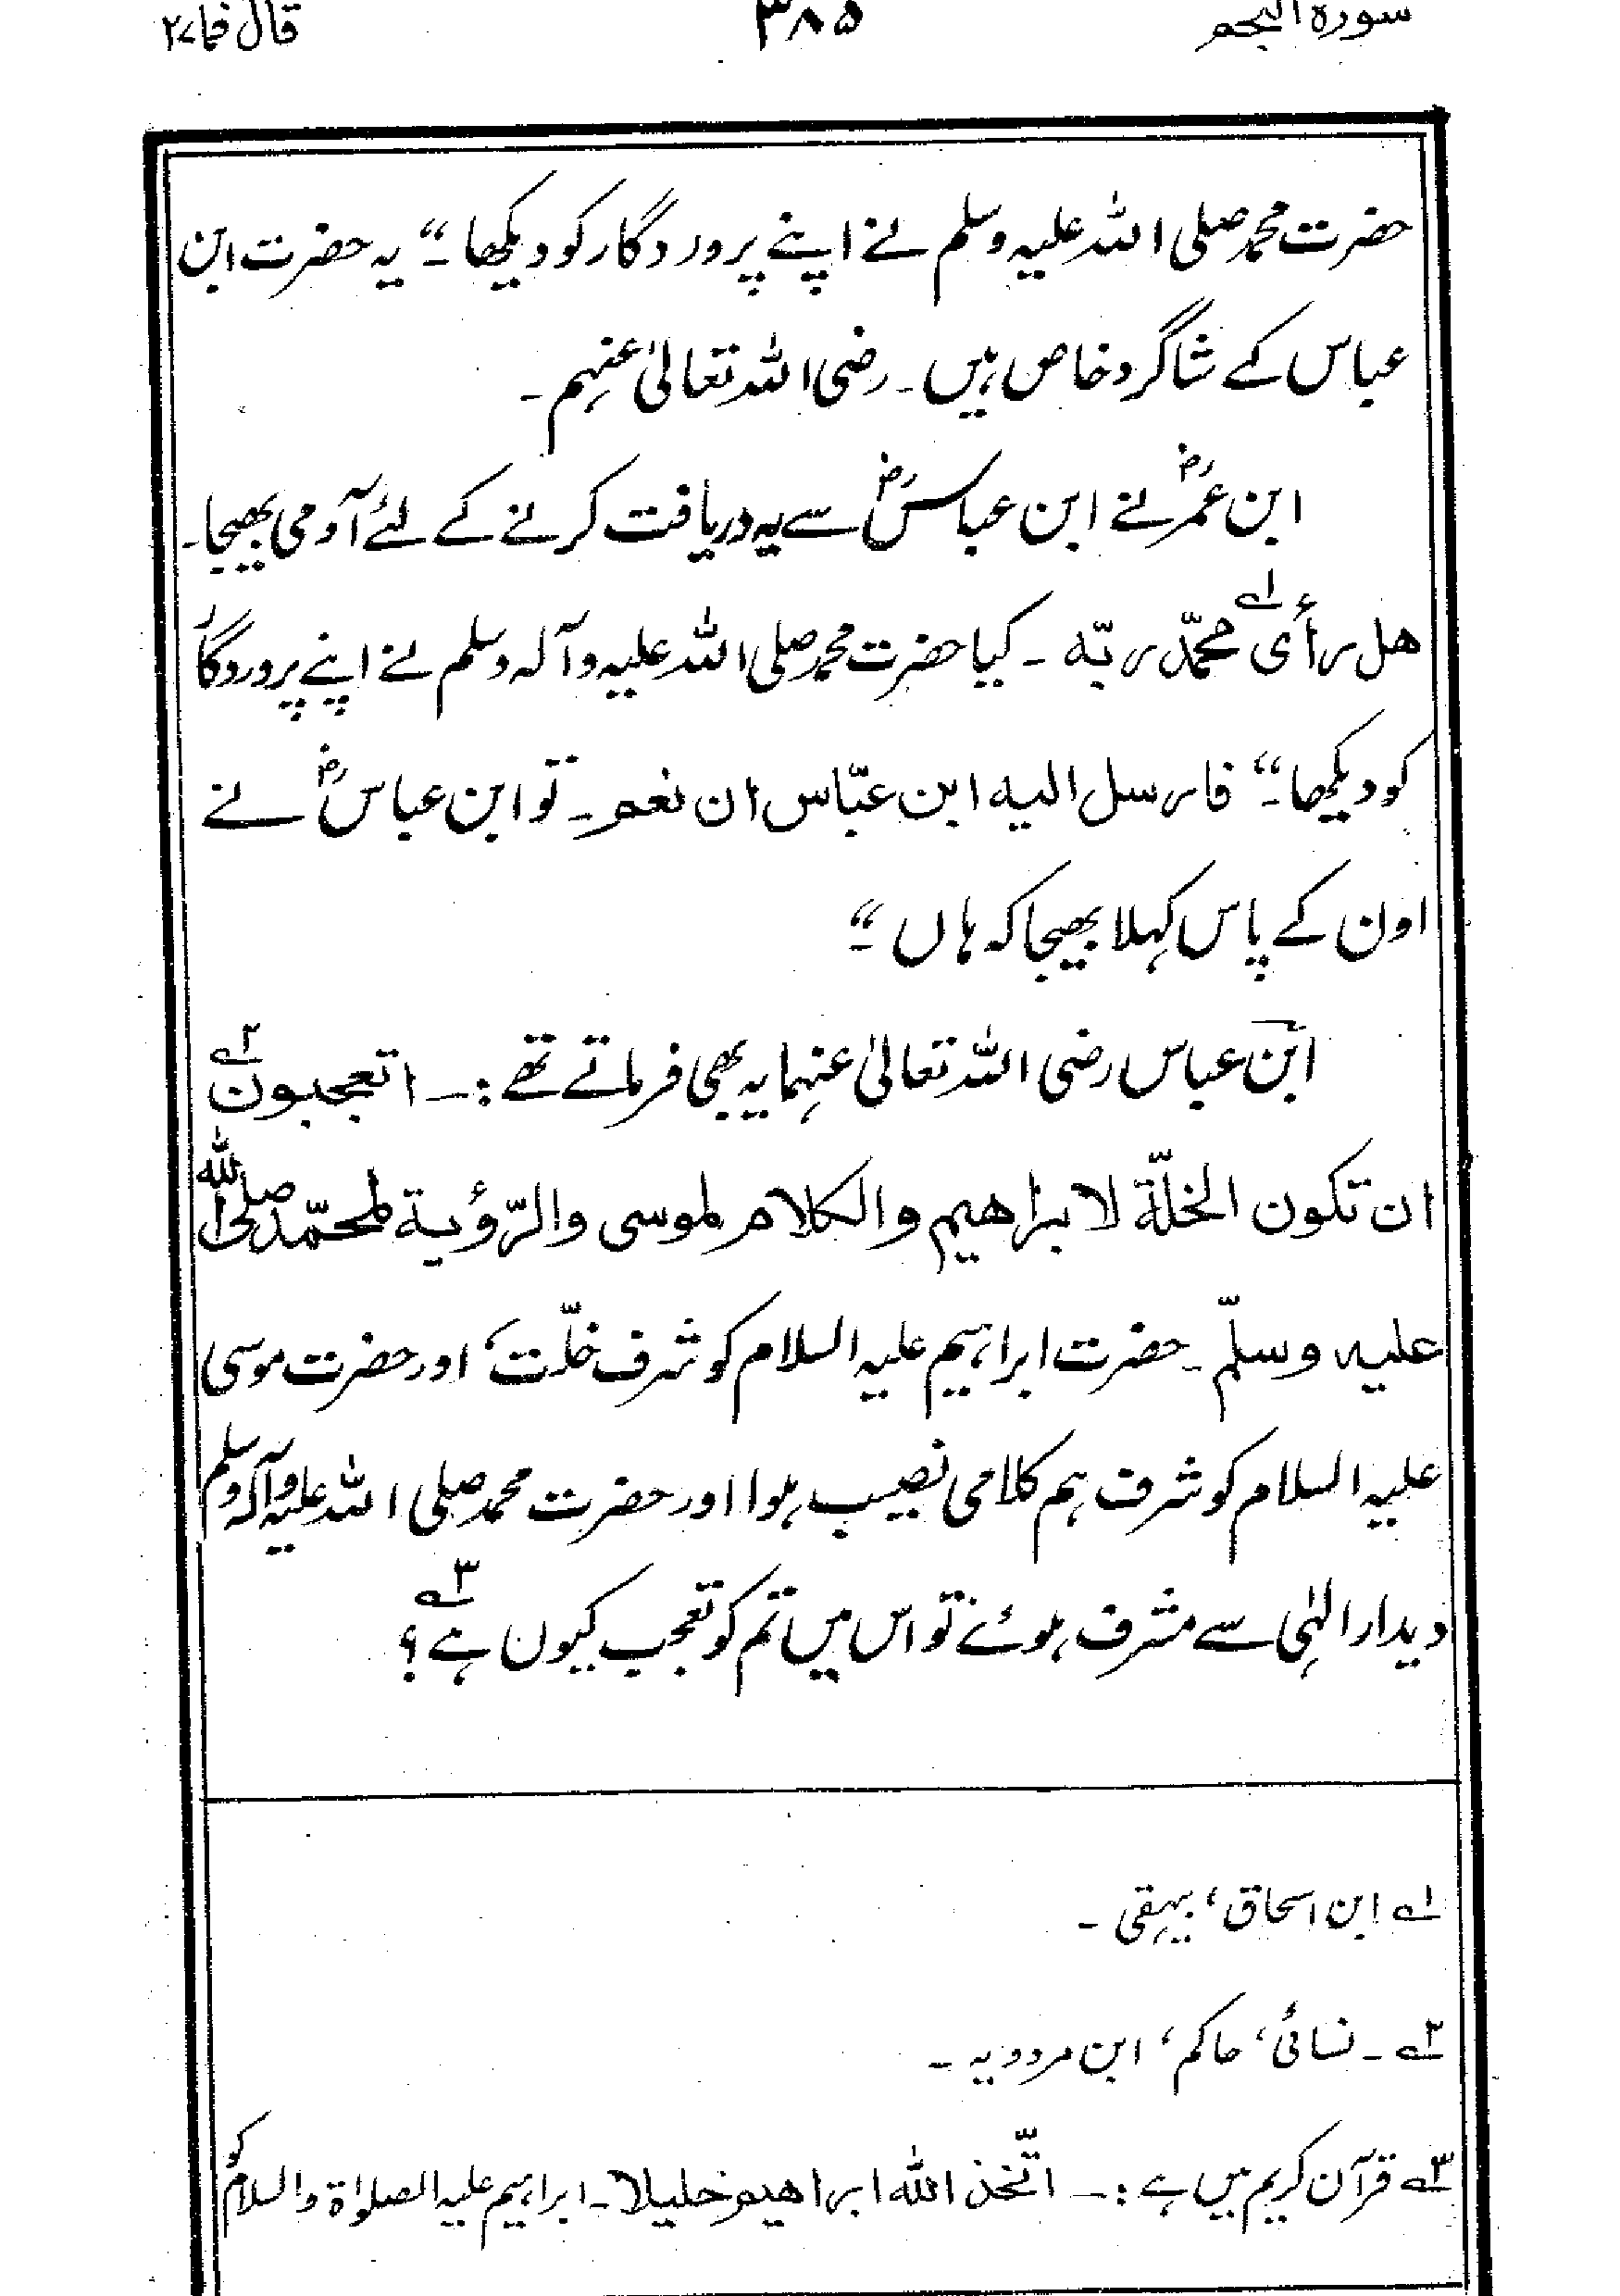 سورہ النجم ۳۸۵ قال فما ۲۷
حضرت محمد صلی اللہ علیہ وسلم نے اپنے پروردگار کو دیکھا۔“ یہ حضرت ابن
عباس کے شاگرد خاص ہیں۔ رضی اللہ تعالیٰ عنہم۔
ابن عمرؓ نے ابن عباسؓ سے یہ دریافت کرنے کے لئے آدمی بھیجا۔
ھل رأی ۱؎ محمّد ربّہ ۔ کیا حضرت محمد صلی اللہ علیہ وآلہ وسلم نے اپنے پروردگار
کو دیکھا۔“ فارسل الیہ ابن عبّاس ان نعم۔ تو ابن عباسؓ نے
اون کے پاس کہلا بھیجا کہ ہاں۔“
ابن عباس رضی اللہ تعالیٰ عنہما یہ بھی فرماتے تھے :۔ اتعجبون ۲؎
ان تکون الخلّۃ لابراھیم والکلام لموسی والرّؤیۃ لمحمّد صلی اللہ
علیہ وسلّم۔ حضرت ابراہیم علیہ السلام کو شرف خلّت، اور حضرت موسی
علیہ السلام کو شرف ہم کلامی نصیب ہوا اور حضرت محمد صلی اللہ علیہ وآلہ وسلم
دیدار الہٰی سے مشرف ہوئے تو اس میں تم کو تعجب کیوں ہے ۳؎ ؟
۱؎ ابن اسحاق، بیہقی۔
۲؎ ۔ نسائی، حاکم، ابن مردویہ۔
۳؎ قرآن کریم میں ہے :۔ اتّخذ اللہ ابراھیم خلیلا۔ ابراہیم علیہ الصلوٰۃ والسلام کو